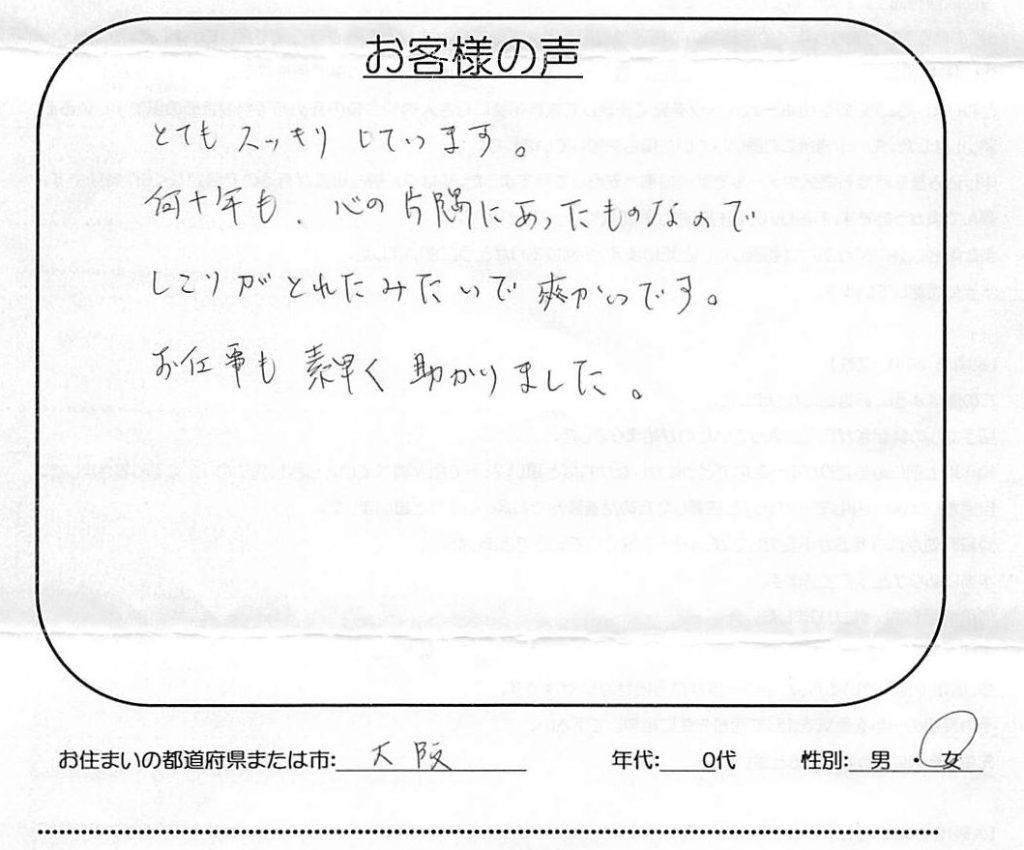 お客様の声
とてもスッキリしています。
何十年も、心の片隅にあったものなので
しこりがとれたみたいで爽かいです。
お仕事も素早く助かりました。
お住まいの都道府県または市: 大阪
年代: 0代 性別: 男 ・ 女